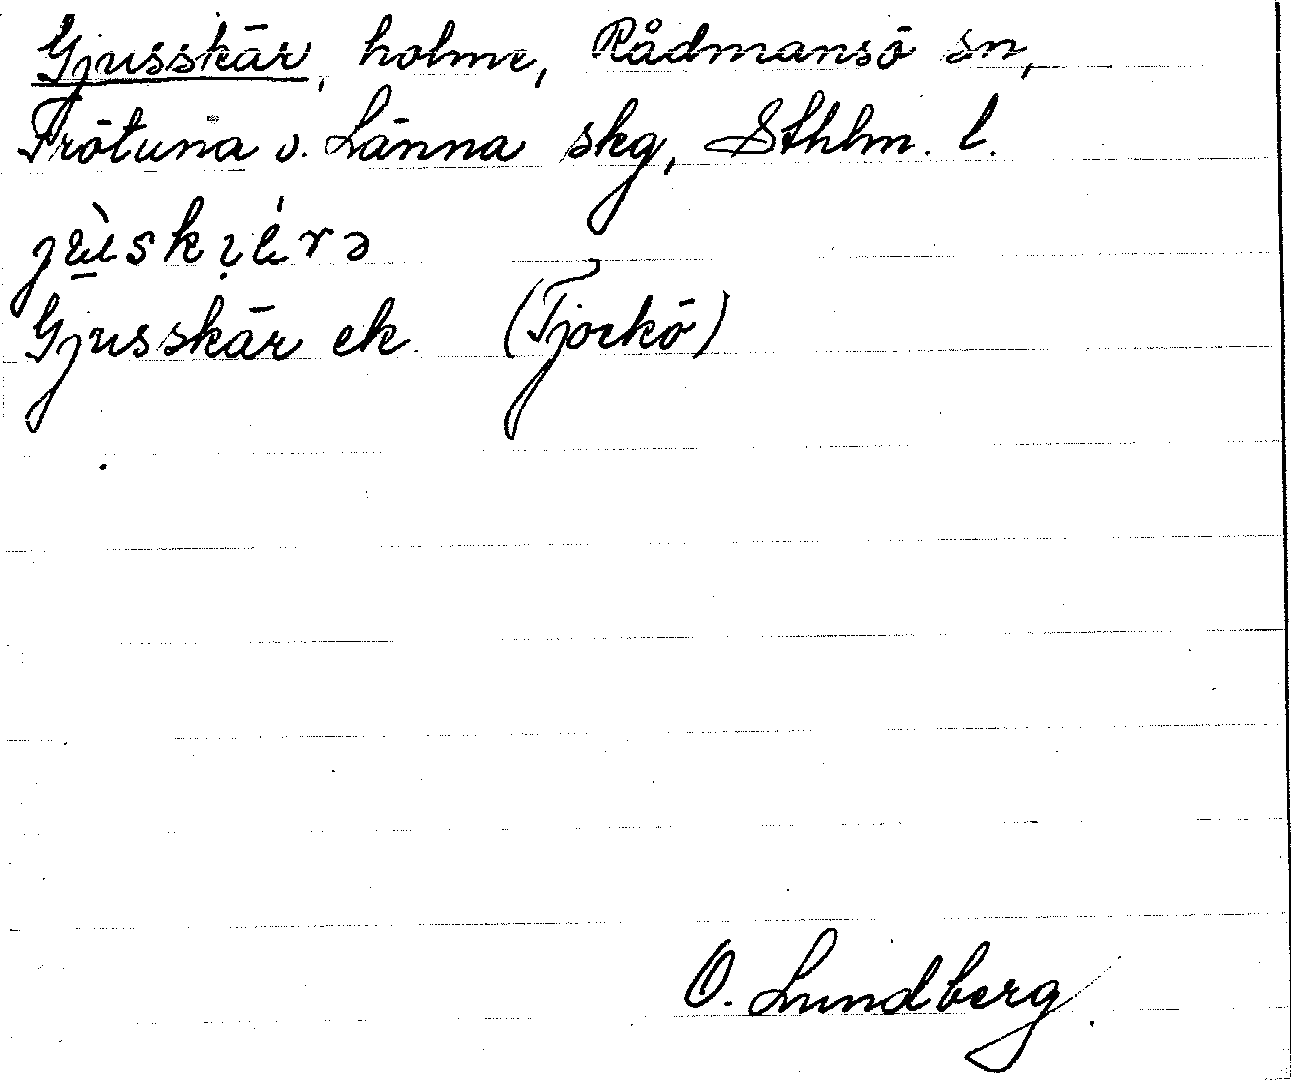 Gjusskär, holme, Rådmansö sn,
Frötuna o. Länna skg, Sthlm. l.
Gjusskär ek. (Tjockö)
O. Lundberg